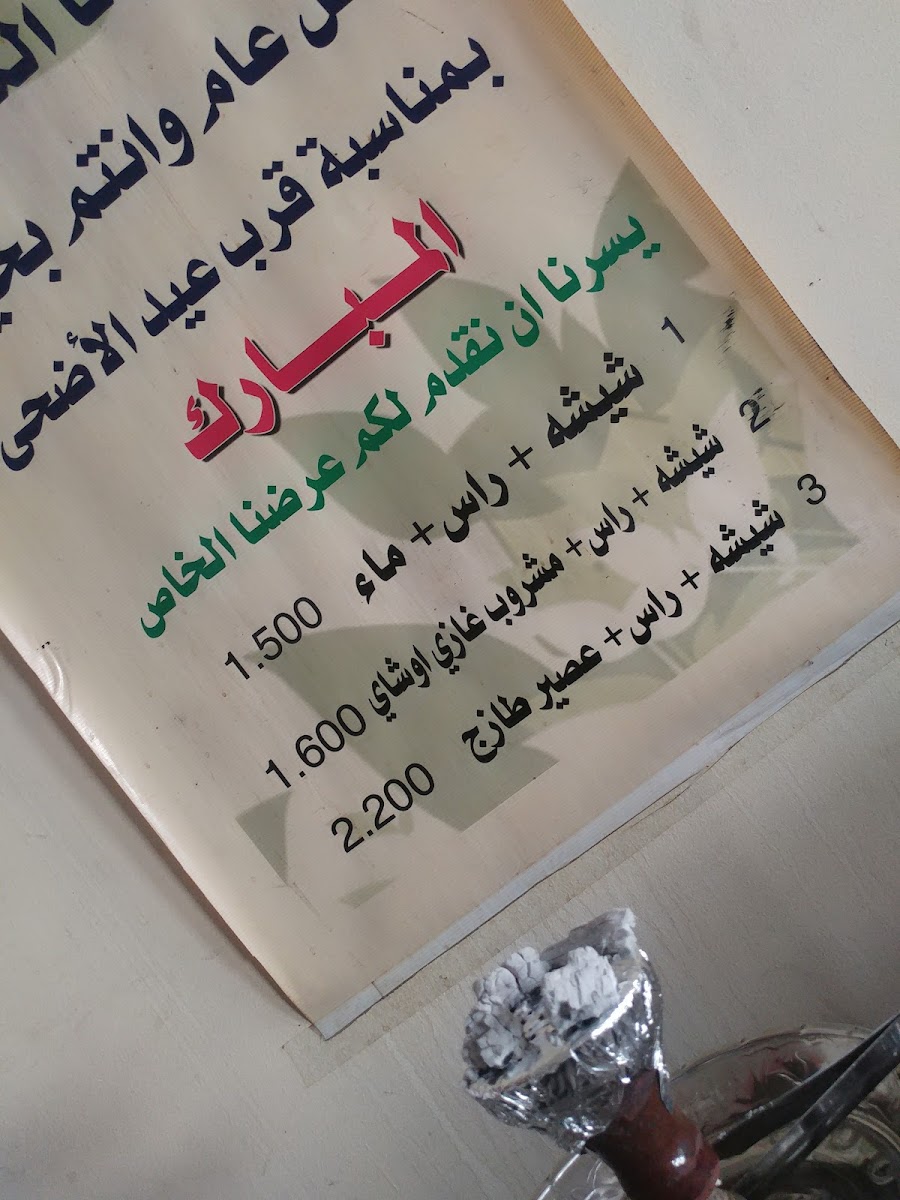 عام وانتم
بمناسبة قرب عيد الأضحى
المبارك
يسرنا ان نقدم لكم عرضنا الخاص
1 شيشه + راس + ماء 1.500
2 شيشه + راس + مشروب غازي اوشاي 1.600
3 شيشه + راس + عصير طازج 2.200